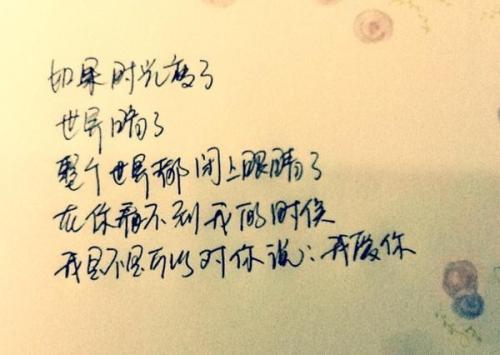 如果时光瘦了
世界暗了
整个世界都闭上眼睛了
在你看不到我的时候
我是不是可以对你说：我爱你